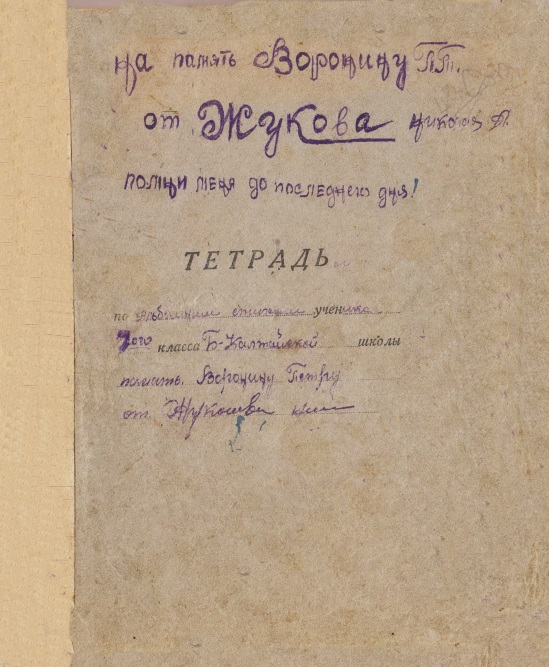 На память Воронину П.П.
от Жукова Николая А.
помни меня до последнего дня!
ТЕТРАДЬ
по альбомным стихам ученика
7ого класса Б-Калтайской школы
память Воронину Петру
от Жукова